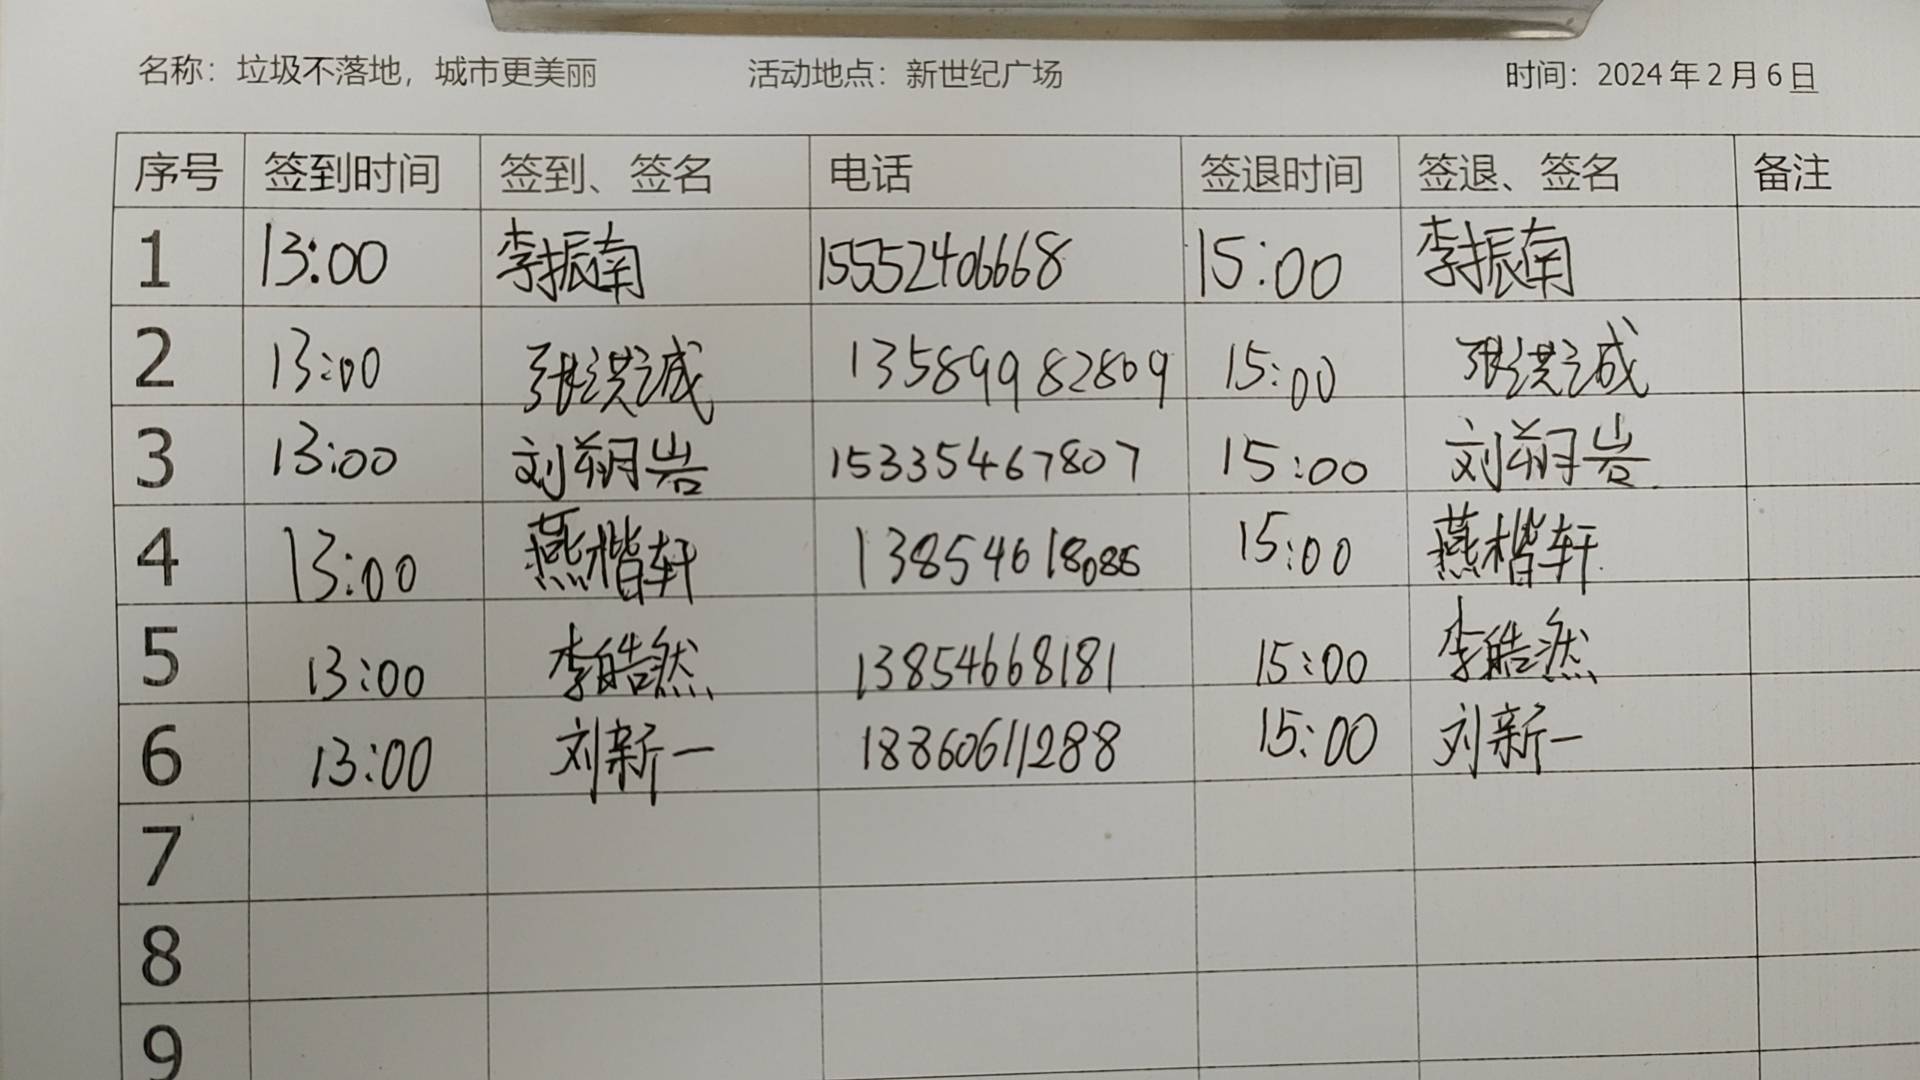 名称：垃圾不落地，城市更美丽 活动地点：新世纪广场 时间：2024年2月6日
序号 签到时间 签到、签名 电话 签退时间 签退、签名 备注
1 13:00 李振南 15552406668 15:00 李振南
2 13:00 张洪诚 13589982809 15:00 张洪诚
3 13:00 刘翔岩 15335467807 15:00 刘翔岩
4 13:00 燕楷轩 13854618086 15:00 燕楷轩
5 13:00 李皓然 13854668181 15:00 李皓然
6 13:00 刘新一 18860611288 15:00 刘新一
7
8
9